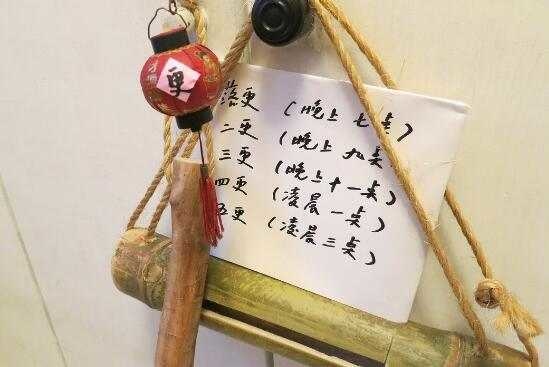 更
落更 (晚上七点)
二更 (晚上九点
三更 (晚上十一点)
四更 (凌晨一点)
五更 (凌晨三点)